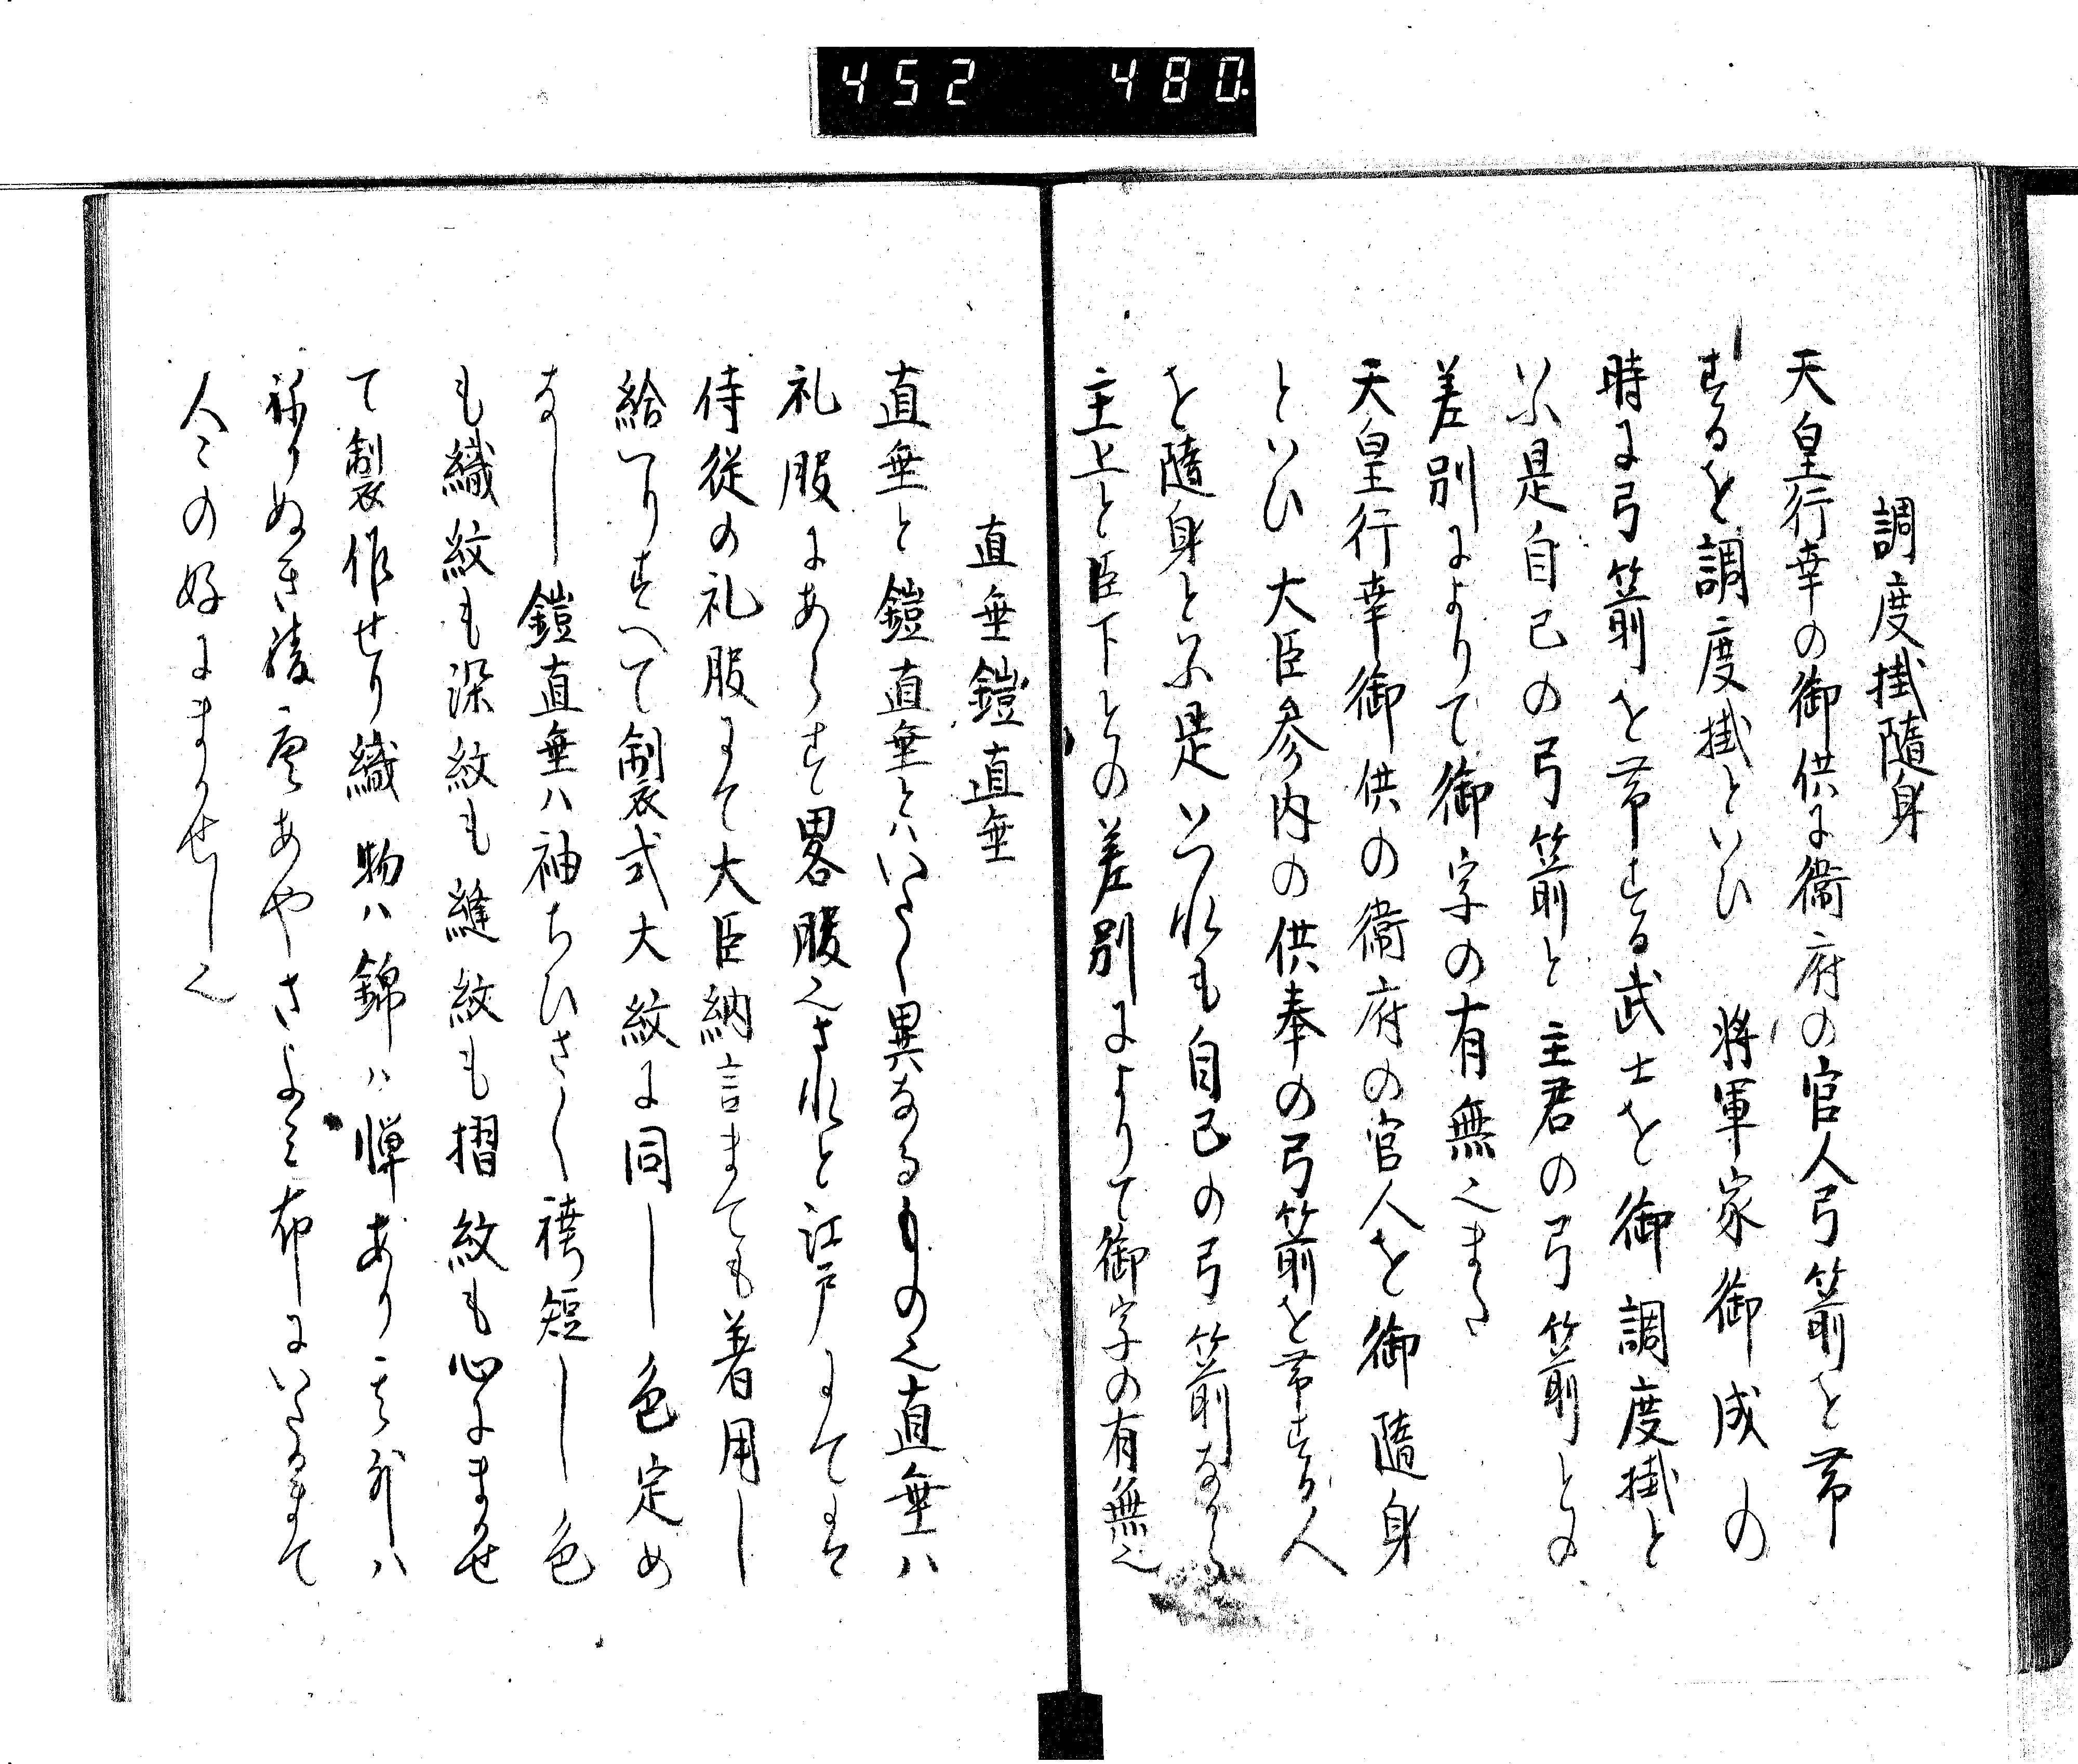 452 480
調度掛隨身
天皇行幸の御供に衞府の官人弓箭を帯
するを調度掛といひ 将軍家御成の
時に弓箭を帯する武士を御調度掛と
いふ是自己の弓箭と主君の弓箭との
差別によりて御字の有無也また
天皇行幸御供の衞府の官人を御隨身
といひ大臣参内の供奉の弓箭を帯する人
を隨身といふ是いつれも自己の弓箭なから
主上と臣下との差別によりて御字の有無也
直垂鎧直垂
直垂と鎧直垂とハいたく異なるもの也直垂ハ
礼服にあらす畧服也されと江戸にては
侍従の礼服にて大臣納言まても着用し
給へりすへて製式大紋に同し色定め
なし鎧直垂ハ袖ちひさく袴短し色
も織紋も染紋も縫紋も摺紋も心にまかせ
て製作せり織物ハ錦ハ憚あり其外ハ
ねりぬき綾 あやさよミ布にいたるまて
人々の好にまかせし也